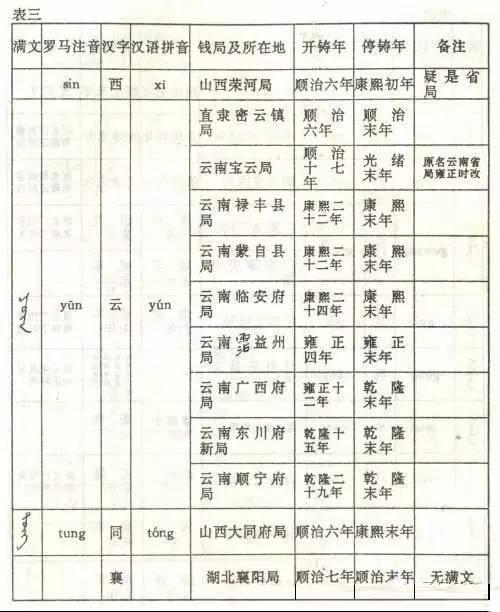 表三
满文 罗马注音 汉字 汉语拼音 钱局及所在地 开铸年 停铸年 备注
sin 西 xī 山西荣河局 顺治六年 康熙初年 疑是省局
yūn 云 yún 直隶密云镇局 顺治六年 顺治末年
云南宝云局 顺治十七年 光绪末年 原名云南省局雍正时改
云南禄丰县局 康熙二十二年 康熙末年
云南蒙自县局 康熙二十二年 康熙末年
云南临安府局 康熙二十四年 康熙末年
云南霑益州局 雍正四年 雍正末年
云南广西府局 雍正十二年 乾隆末年
云南东川府新局 乾隆十五年 乾隆末年
云南顺宁府局 乾隆二十九年 乾隆末年
tung 同 tóng 山西大同府局 顺治六年 康熙末年
襄 湖北襄阳局 顺治七年 顺治末年 无满文